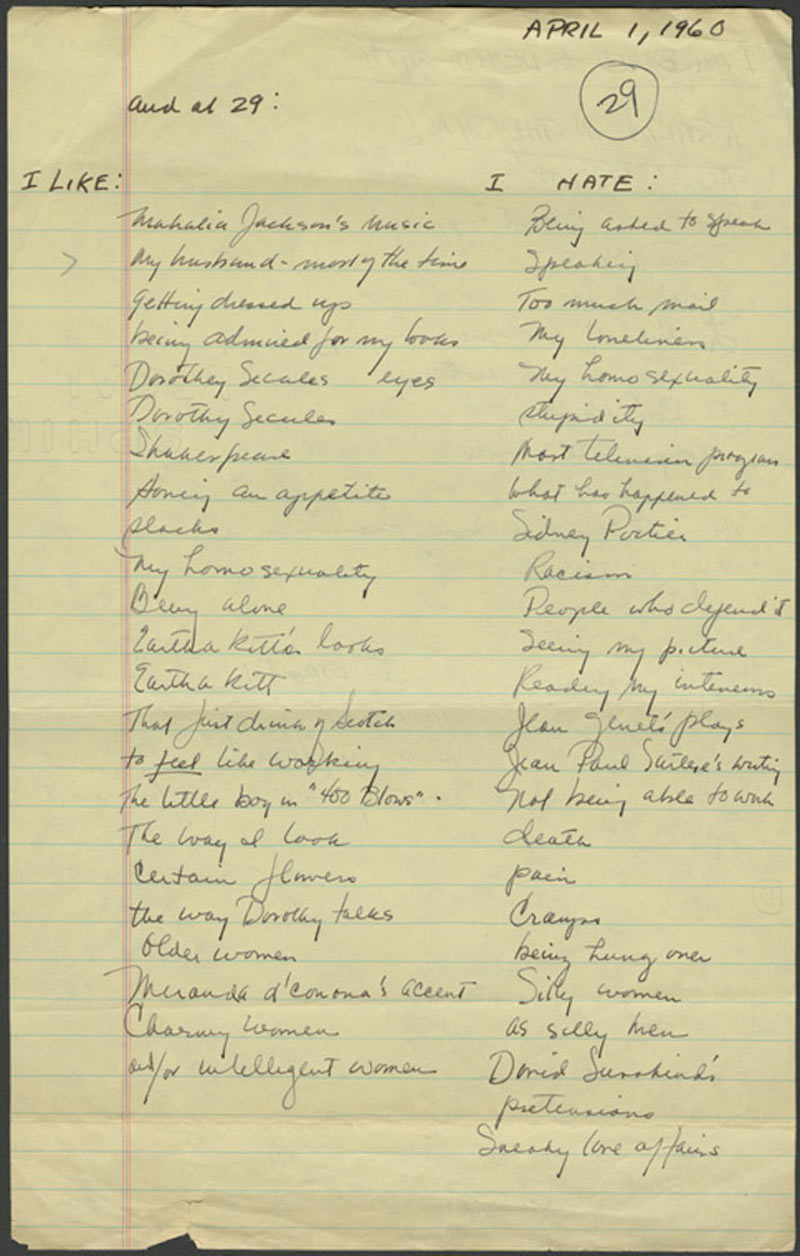 APRIL 1, 1960
29
and at 29:
I LIKE:
Mahalia Jackson's music
My husband - most of the time
getting dressed up
being admired for my looks
Dorothey Secules eyes
Dorothy Secules
Shakespeare
Having an appetite
slacks
My homosexuality
Being alone
Eartha Kitt's looks
Eartha Kitt
That first drink of Scotch
to feel like working
The little boy in "400 Blows".
The way I look
Certain flowers
the way Dorothy talks
Older women
Miranda d'Corona's accent
Charming women
and/or intelligent women
I HATE:
Being asked to speak
Speaking
Too much mail
My loneliness
My homosexuality
stupidity
Most television programs
What has happened to
Sidney Poitier
Racism
People who defend it
Seeing my picture
Reading my interviews
Jean Genet's plays
Jean Paul Sartre's writing
Not being able to work
death
pain
Cramps
being hung over
Silly women
as silly men
David Susskind's
pretensions
Sneaky love affairs